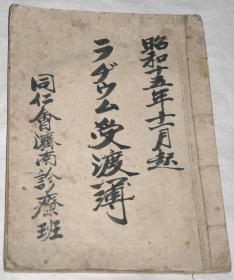 昭和十五年十一月起
ラヂウム受渡簿
同仁會濟南診療班